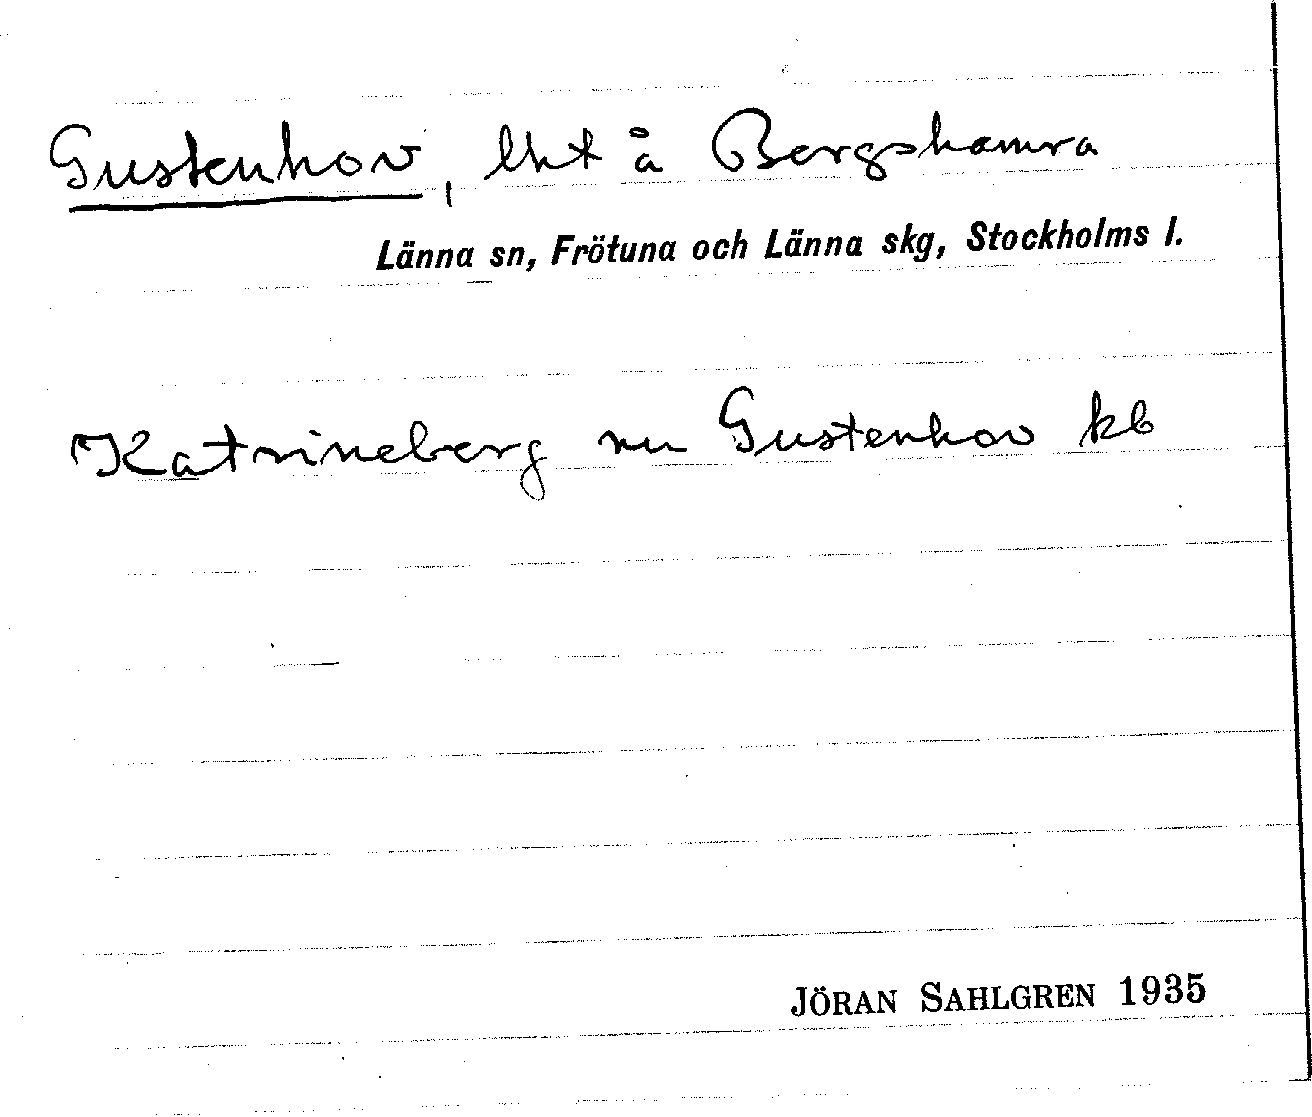 Gustenhov, lht å Bergshamra
Länna sn, Frötuna och Länna skg, Stockholms l.
Katrineberg nu Gustenhov kb
JÖRAN SAHLGREN 1935